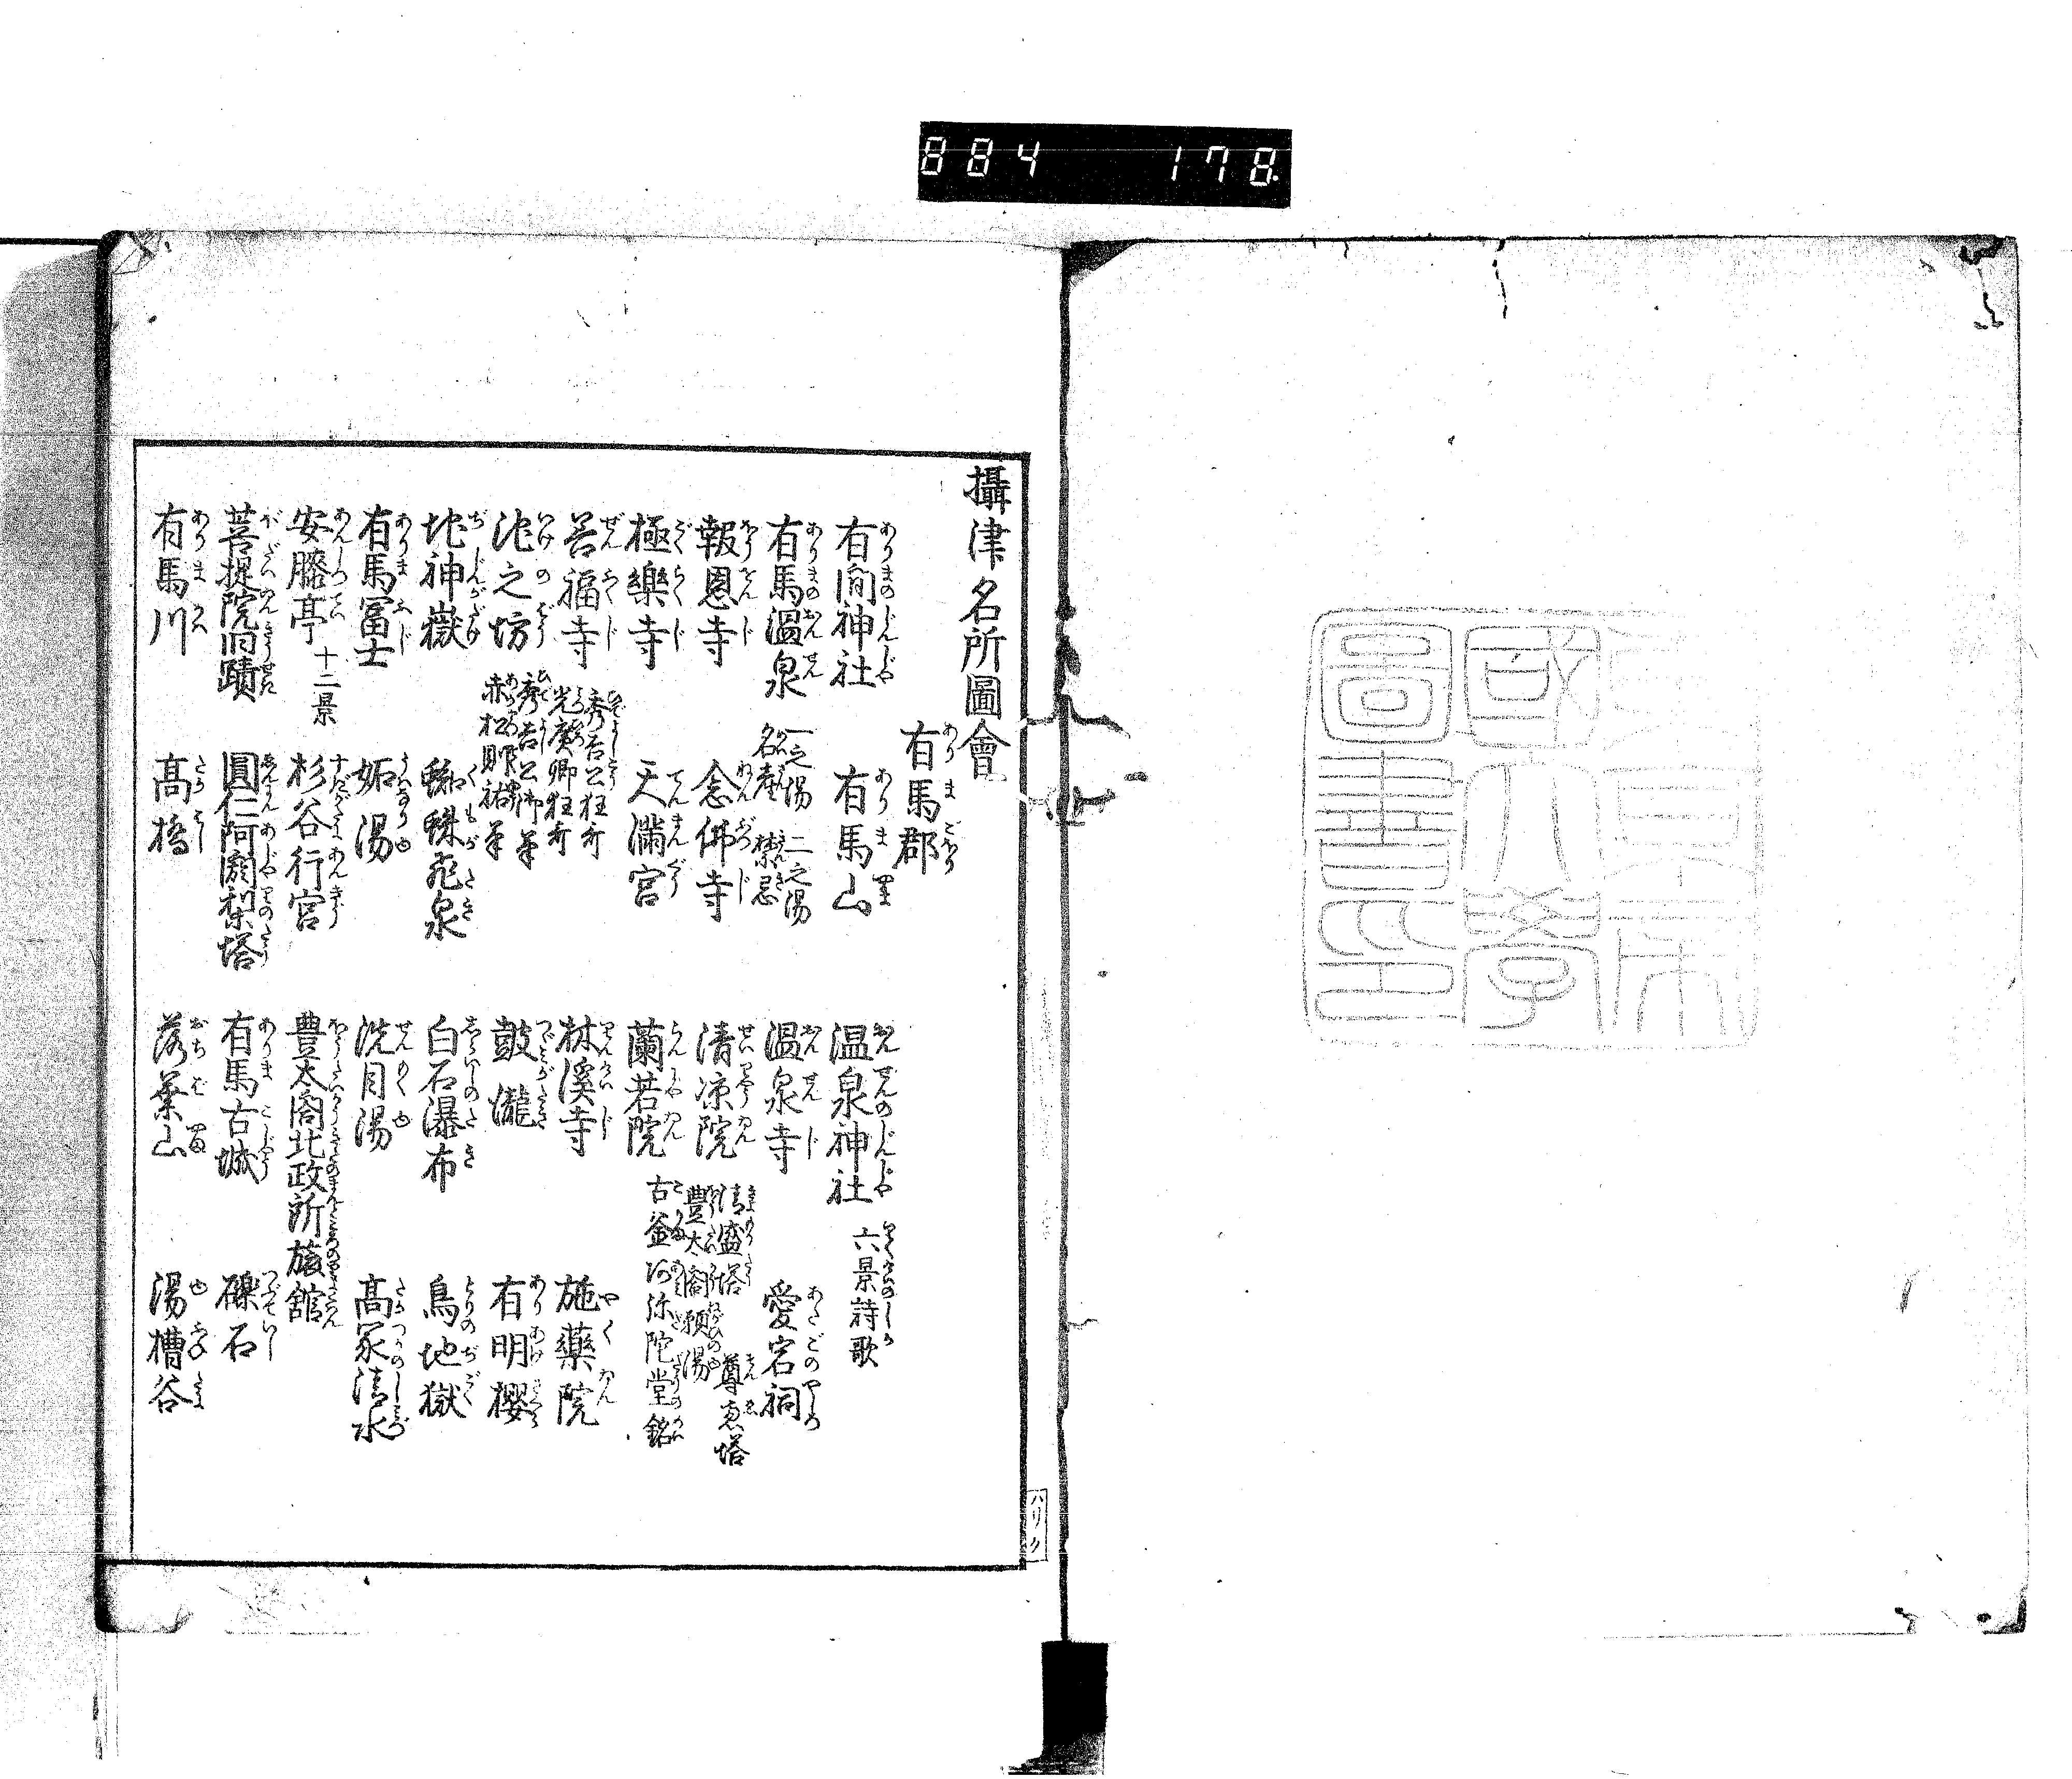 884 178
東京帝國大學圖書印
攝津名所圖會
有馬郡
有間神社 有馬山 温泉神社 六景詩歌
有馬温泉 一之湯 二之湯 名産 禁忌 温泉寺 愛宕祠
報恩寺 念佛寺 清凉院 清盛塔 尊恵塔 豊太閤願湯
極樂寺 天満宮 蘭若院 古釜 阿弥陀堂銘
善福寺 秀吉公狂哥 光廣卿狂哥 林溪寺 施藥院
池之坊 秀吉公御筆 赤松則祐筆 鼓瀧 有明櫻
地神嶽 蜘蛛滝 白石瀑布 鳥地獄
有馬冨士 妬湯 洗目湯 高冢清水
安藤亭 十二景 杉谷行宮 豊太閤北政所旅舘
菩提院旧蹟 圓仁阿闍梨塔 有馬古城 礫石
有馬川 高橋 落葉山 湯槽谷
ハリク